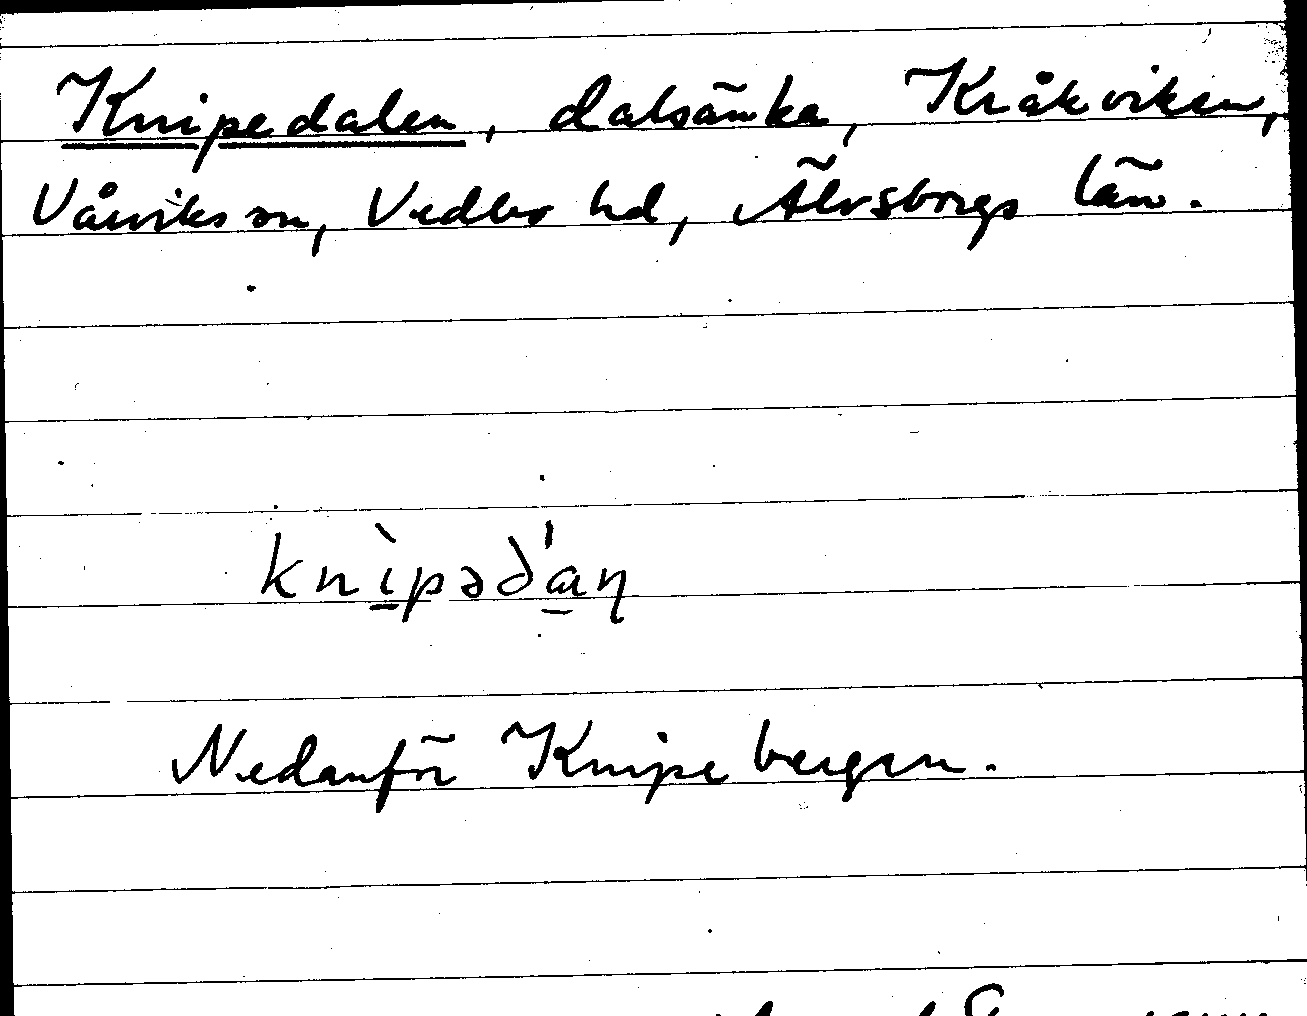 Knipedalen, dalsänka, Kråkviken,
Vårviks sn, Vedbo hd, Älvsborgs län.
knìpəd'aɳ
Nedanför Knipebergen.